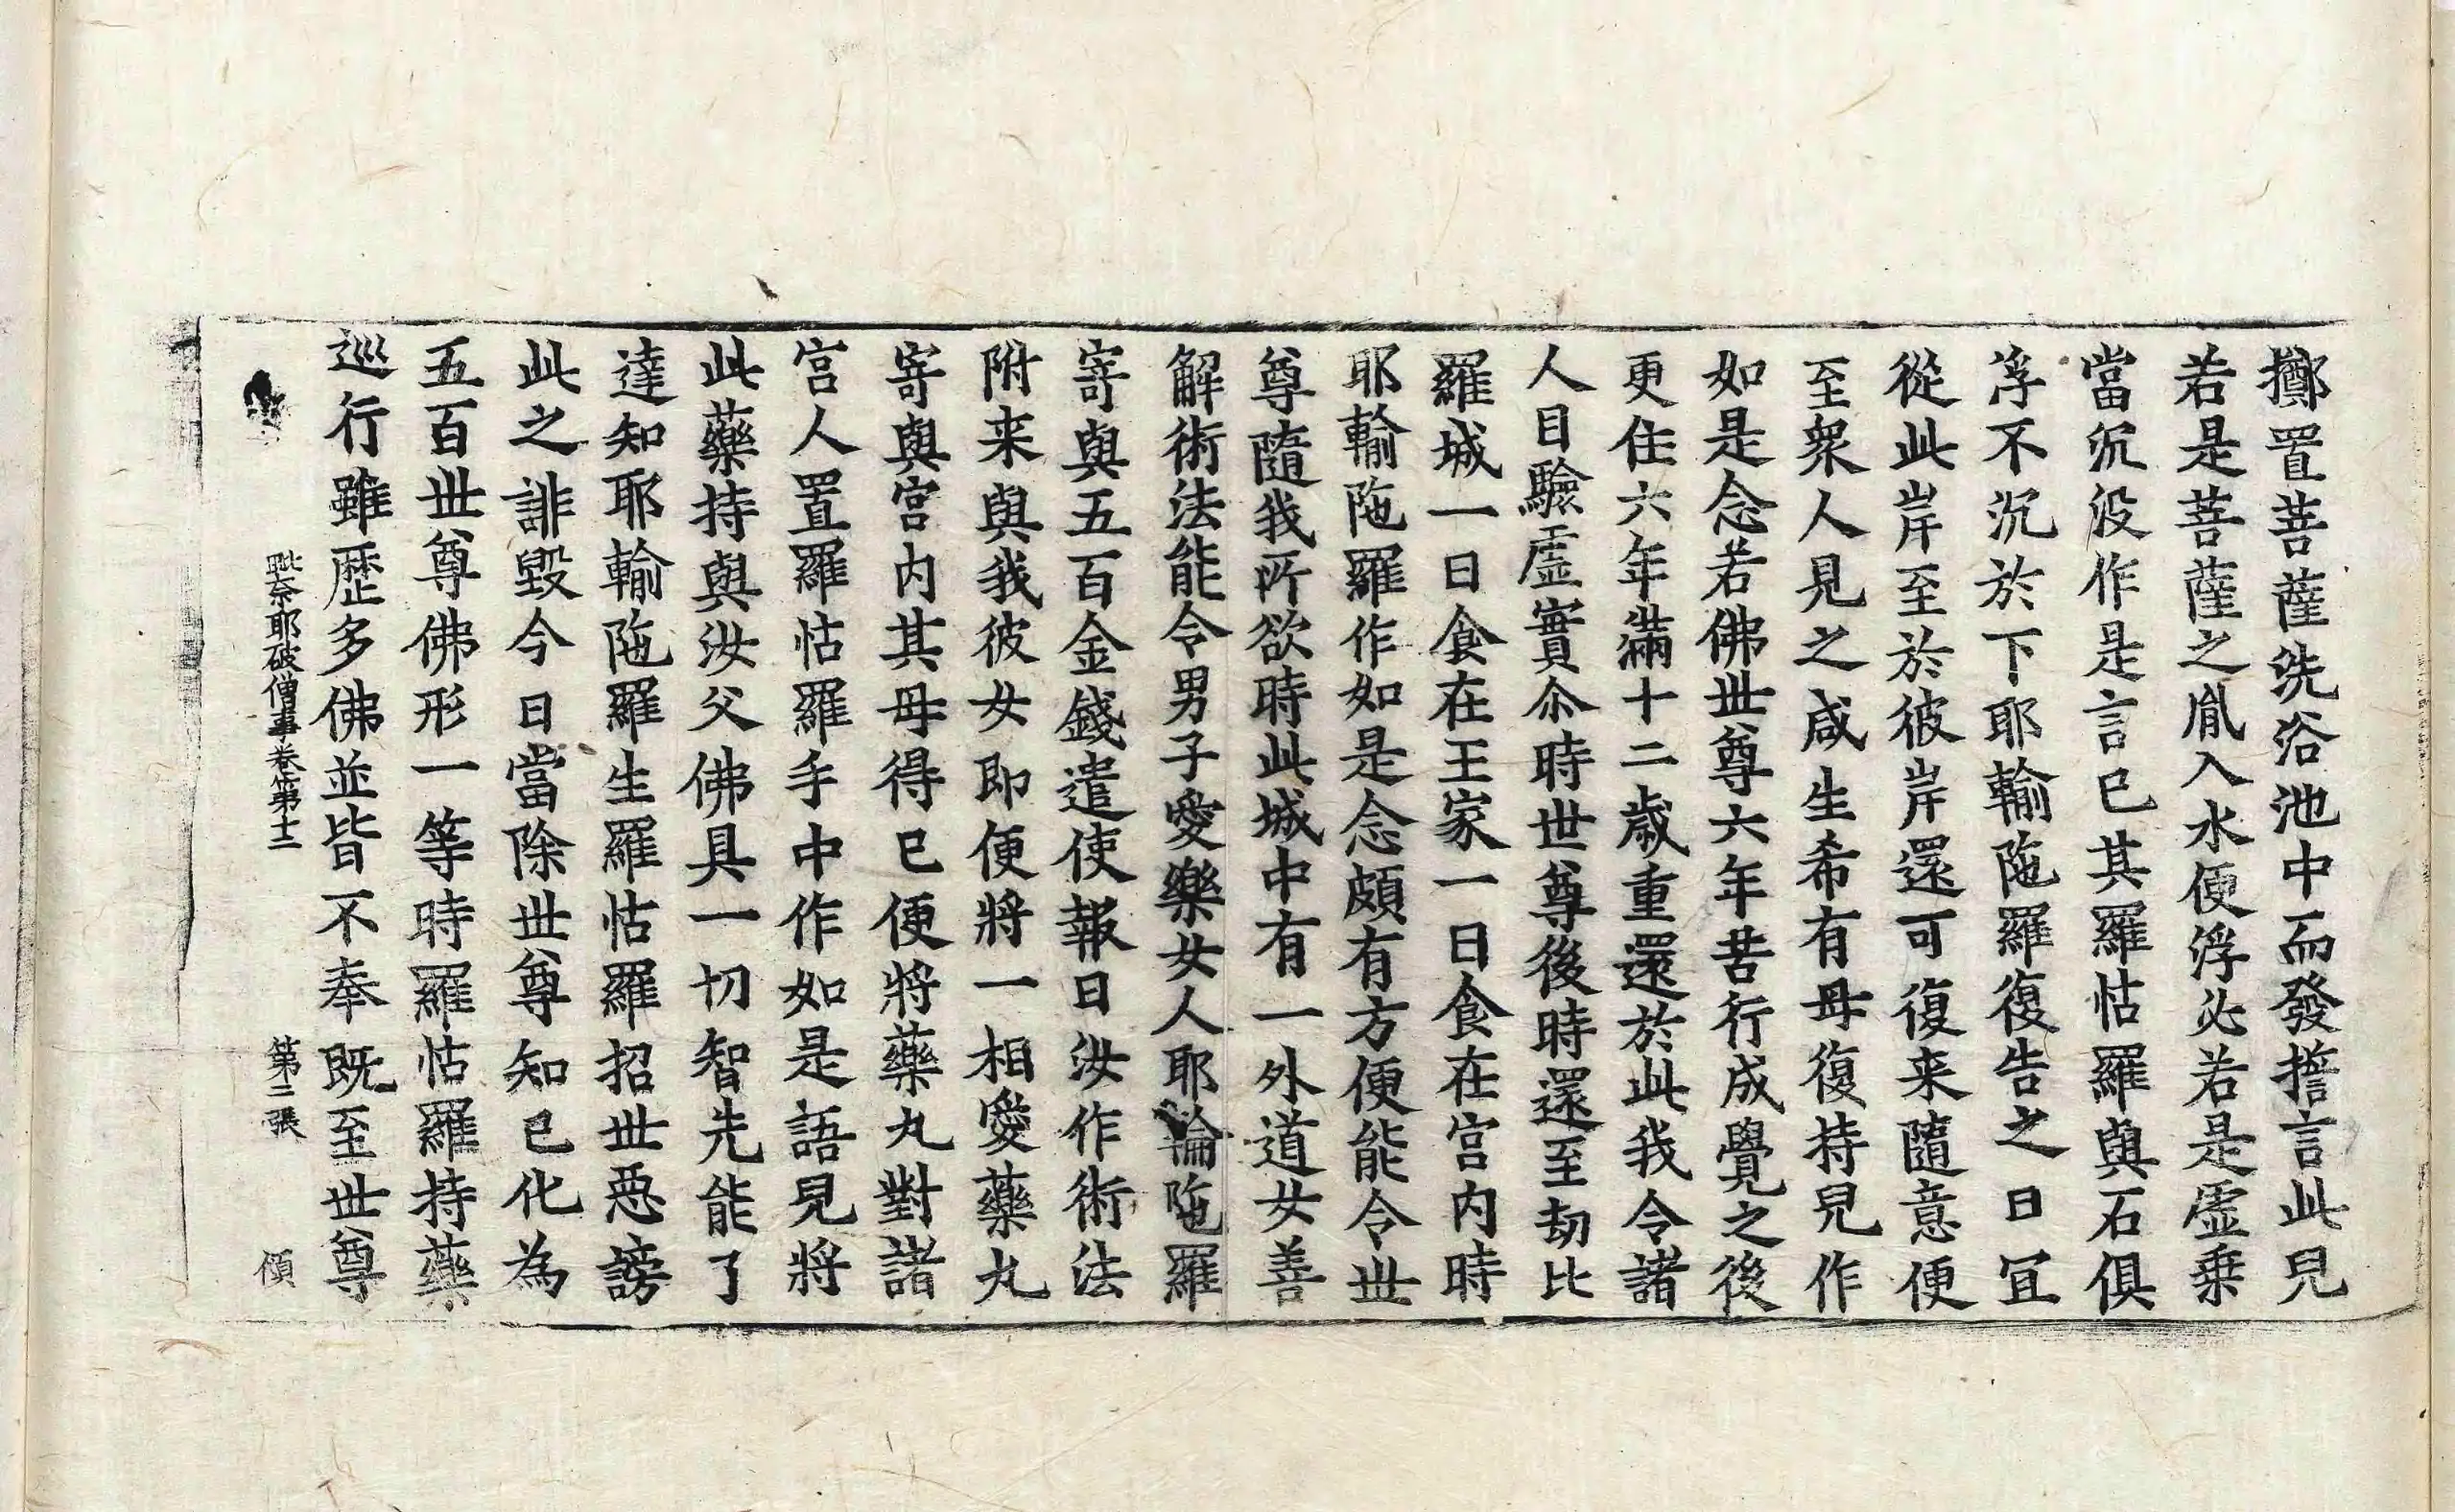 擲置菩薩洗浴池中而發誓言此兒
若是菩薩之胤入水便浮必若是虛乗
當沉没作是言已其羅怙羅與石俱
浮不沉於下耶輸陁羅復告之曰冝
從此岸至於彼岸還可復来隨意便
至衆人見之咸生希有母復持兒作
如是念若佛世尊六年苦行成覺之後
更住六年滿十二歲重還於此我令諸
人目驗虛實尒時世尊後時還至劫比
羅城一日食在王家一日食在宫内時
耶輸陁羅作如是念頗有方便能令世
尊隨我所欲時此城中有一外道女善
解術法能令男子愛樂女人耶輸陁羅
寄與五百金錢遣使報曰汝作術法
附来與我彼女即便將一相愛藥丸
寄與宫内其母得已便將藥丸對諸
宫人置羅怙羅手中作如是語兒將
此藥持與汝父佛具一切智先能了
達知耶輸陁羅生羅怙羅招世惡謗
此之誹毀今日當除世尊知已化為
五百世尊佛形一等時羅怙羅持藥
巡行雖歷多佛並皆不奉既至世尊
毗奈耶破僧事卷第十二 第三張 頎